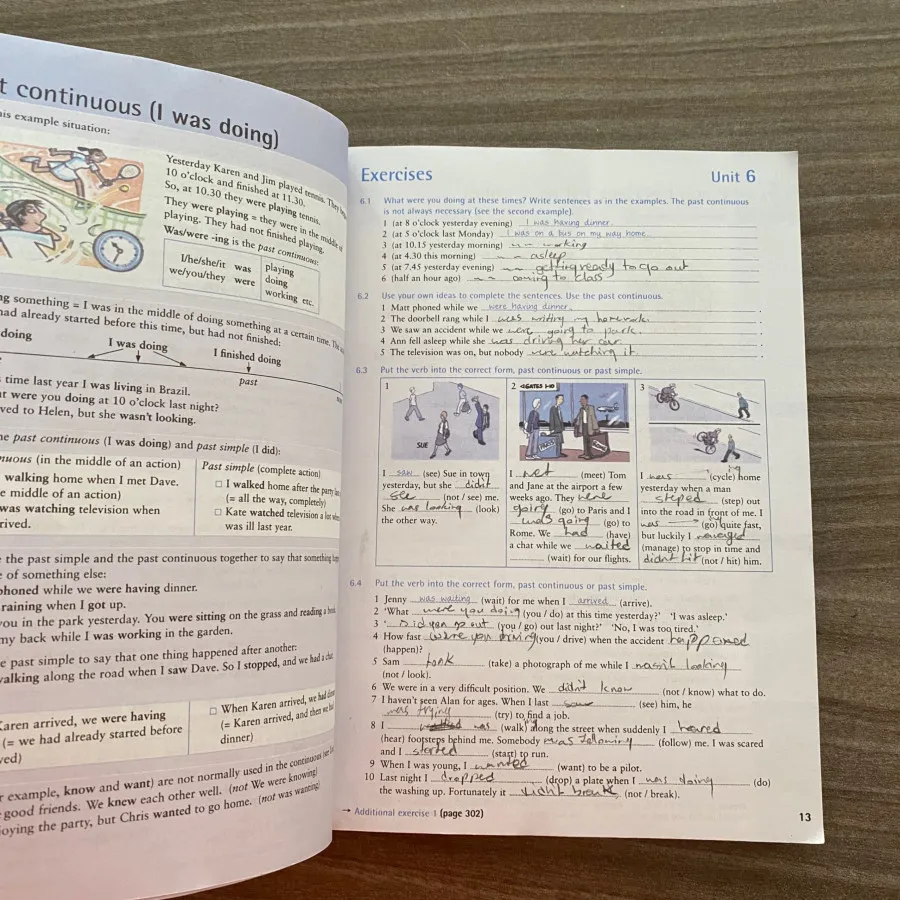 t continuous (I was doing)
his example situation:
Yesterday Karen and Jim played tennis. They
10 o'clock and finished at 11.30.
So, at 10.30 they were playing tennis.
They were playing = they were in the middle of
playing. They had not finished playing.
Was/were -ing is the past continuous:
I/he/she/it was
we/you/they were
playing
doing
working etc.
ng something = I was in the middle of doing something at a certain time. The
had already started before this time, but had not finished:
doing
I was doing
I finished doing
past
s time last year I was living in Brazil.
at were you doing at 10 o'clock last night?
ved to Helen, but she wasn't looking.
he past continuous (I was doing) and past simple (I did):
nuous (in the middle of an action)
walking home when I met Dave.
e middle of an action)
was watching television when
rived.
Past simple (complete action)
I walked home after the party
(= all the way, completely)
Kate watched television a lot
was ill last year.
e the past simple and the past continuous together to say that something
e of something else:
phoned while we were having dinner.
raining when I got up.
you in the park yesterday. You were sitting on the grass and reading a
my back while I was working in the garden.
e past simple to say that one thing happened after another:
alking along the road when I saw Dave. So I stopped, and we had a
Karen arrived, we were having
(= we had already started before
ved)
When Karen arrived, we had
(= Karen arrived, and then we
dinner)
r example, know and want) are not normally used in the continuous
good friends. We knew each other well. (not We were knowing)
joying the party, but Chris wanted to go home. (not was wanting)
Exercises Unit 6
6.1 What were you doing at these times? Write sentences as in the examples. The past continuous
is not always necessary (see the second example).
1 (at 8 o'clock yesterday evening) I was having dinner.
2 (at 5 o'clock last Monday) I was on a bus on my way home.
3 (at 10.15 yesterday morning) ~ ~ working
4 (at 4.30 this morning) ~ ~ asleep
5 (at 7.45 yesterday evening) ~ ~ getting ready to go out
6 (half an hour ago) ~ ~ coming to class
6.2 Use your own ideas to complete the sentences. Use the past continuous.
1 Matt phoned while we were having dinner.
2 The doorbell rang while I was writing my homework.
3 We saw an accident while we were going to park.
4 Ann fell asleep while she was driving her car.
5 The television was on, but nobody were watching it.
6.3 Put the verb into the correct form, past continuous or past simple.
1
SUE
I saw (see) Sue in town
yesterday, but she didn't
see (not / see) me.
She was looking (look)
the other way.
2
GATES 1-10
I met (meet) Tom
and Jane at the airport a few
weeks ago. They were
going (go) to Paris and I
was going (go) to
Rome. We had (have)
a chat while we waited
(wait) for our flights.
3
I was (cycle) ing home
yesterday when a man
steped (step) out
into the road in front of me. I
was (go) ing quite fast,
but luckily I managed
(manage) to stop in time and
didn't hit (not / hit) him.
6.4 Put the verb into the correct form, past continuous or past simple.
1 Jenny was waiting (wait) for me when I arrived (arrive).
2 'What were you doing (you / do) at this time yesterday?' 'I was asleep.'
3 ' Did you go out (you / go) out last night?' 'No, I was too tired.'
4 How fast were you driving (you / drive) when the accident happened
(happen)?
5 Sam took (take) a photograph of me while I wasn't looking
(not / look).
6 We were in a very difficult position. We didn't know (not / know) what to do.
7 I haven't seen Alan for ages. When I last saw (see) him, he
was trying (try) to find a job.
8 I was (walk) ing along the street when suddenly I heared
(hear) footsteps behind me. Somebody was following (follow) me. I was scared
and I started (start) to run.
9 When I was young, I wanted (want) to be a pilot.
10 Last night I dropped (drop) a plate when I was doing (do)
the washing up. Fortunately it didn't break (not / break).
→ Additional exercise 1 (page 302)
13